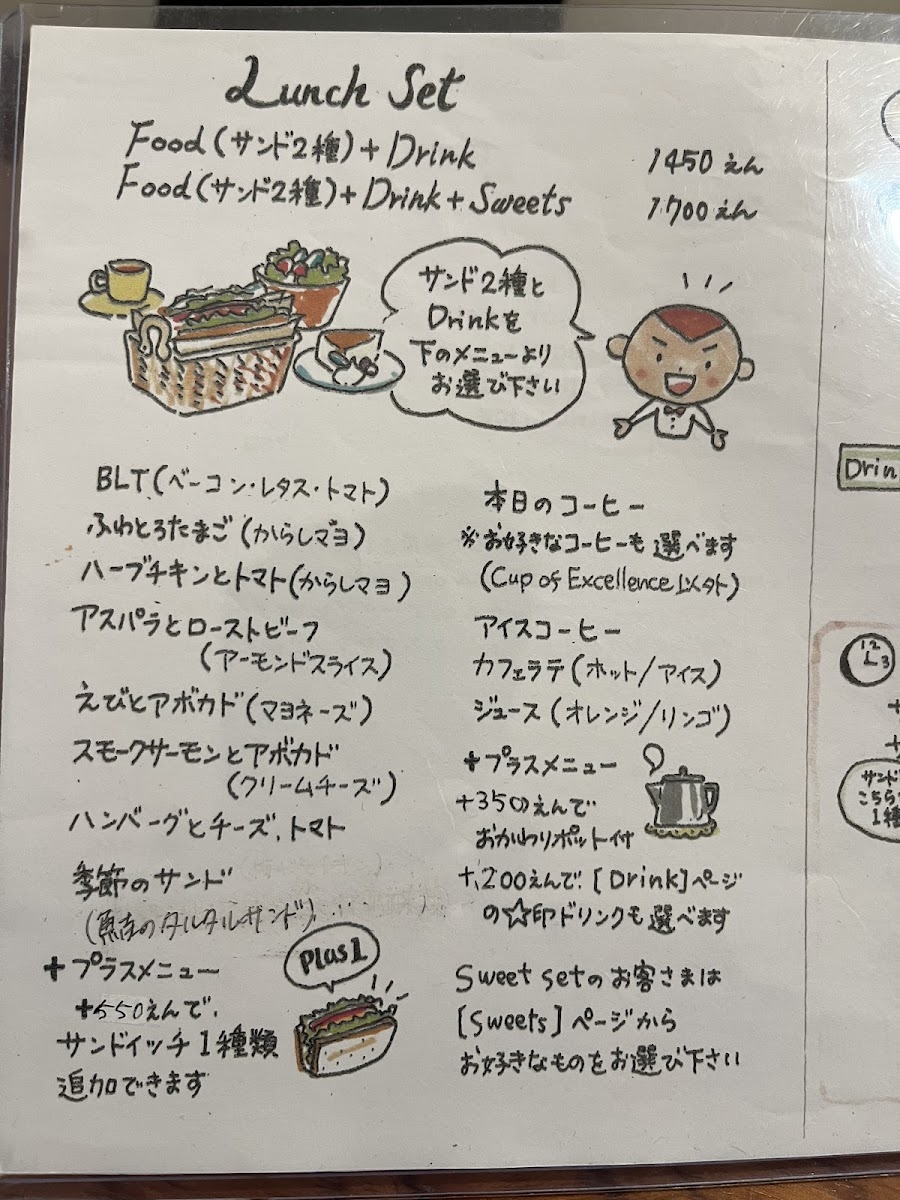 Lunch Set
Food(サンド2種)+Drink 1450えん
Food(サンド2種)+Drink+Sweets 1700えん
サンド2種と
Drinkを
下のメニューより
お選び下さい
BLT(ベーコン・レタス・トマト)
ふわとろたまご(からしマヨ)
ハーブチキンとトマト(からしマヨ)
アスパラとローストビーフ
(アーモンドスライス)
えびとアボカド(マヨネーズ)
スモークサーモンとアボカド
(クリームチーズ)
ハンバーグとチーズ、トマト
季節のサンド
のタルタルサンド)
+プラスメニュー
+550えんで、
サンドイッチ1種類
追加できます
Plus1
本日のコーヒー
※お好きなコーヒーも選べます
(Cup of Excellence以外)
アイスコーヒー
カフェラテ(ホット/アイス)
ジュース(オレンジ/リンゴ)
+プラスメニュー
+350えんで
おかわりポット付
+200えんで、[Drink]ページ
の☆印ドリンクも選べます
Sweet setのお客さまは
[Sweets]ページから
お好きなものをお選び下さい
Drin
12
3
+
+
サンド
こちら
1種